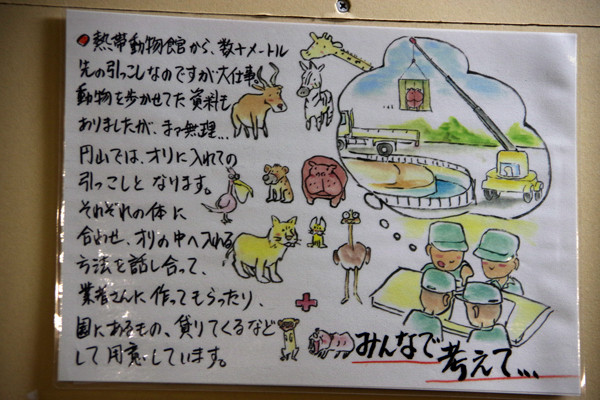 熱帯動物館から、数十メートル
先の引っこしなのですが大仕事。
動物を歩かせてた資料も
ありましたが、まァ無理...
円山では、オリに入れての
引っこしとなります。
それぞれの体に
合わせ、オリの中へ入れる
方法を話し合って、
業者さんに作ってもらったり、
園にあるもの、貸りてくるなど
して用意しています。
みんなで
考えて...